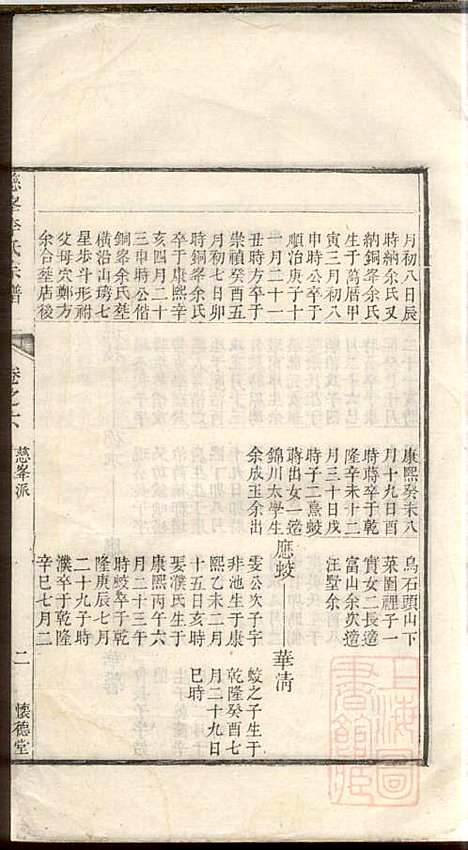 月初八日辰
時納余氏又
納銅峯余氏
生于萬厯甲
寅三月初八
申時公卒于
順治庚子十
一月二十一
丑時方卒子
崇禎癸酉五
月初七日卯
時銅峯余氏
卒于康熙辛
亥四月二十
三申時公偕
銅峯余氏塟
橫沿山塆七
星步斗形祔
父母穴鄭方
余合塟店後
康熙癸未八
月十九日酉
時蒔卒于乾
隆辛未十二
月三十日戌
時子二熹蛟
蒔出女一造
錦川太學生
余成玉余出
烏石頭山下
菜園裡子一
賓女二長造
富山余次造
汪墅余
應蛟
雯公次子字
非池生于康
熙乙未二月
十五日亥時
娶濮氏生于
康熙丙午六
月二十三年
時蛟卒于乾
隆庚辰七月
二十九子時
濮卒于乾隆
辛巳七月二
華清
蛟之子生于
乾隆癸酉七
月二十九日
巳時
慈峯李氏宗譜
卷之六
慈峯派
二
懷德堂
上海圖書館藏